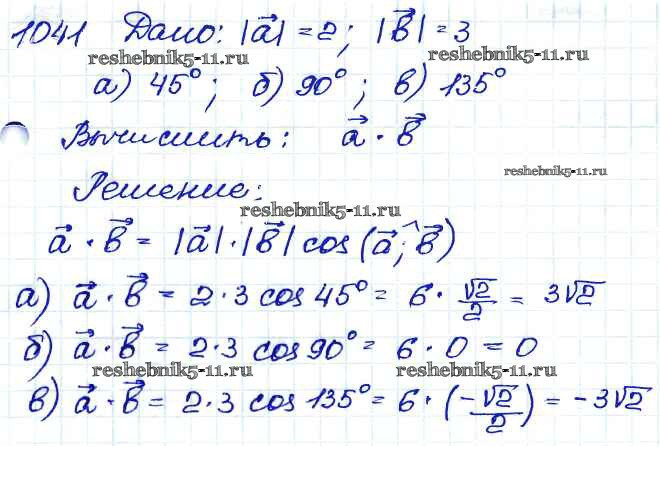 1041 Дано: |a⃗| = 2; |b⃗| = 3
reshebnik5-11.ru reshebnik5-11.ru
а) 45°; б) 90°; в) 135°
Вычислить: a⃗ · b⃗
reshebnik5-11.ru
Решение:
reshebnik5-11.ru
a⃗ · b⃗ = |a⃗| · |b⃗| cos(a⃗; ^ b⃗)
а) a⃗ · b⃗ = 2 · 3 cos 45° = 6 · √2/2 = 3√2
б) a⃗ · b⃗ = 2 · 3 cos 90° = 6 · 0 = 0
reshebnik5-11.ru reshebnik5-11.ru
в) a⃗ · b⃗ = 2 · 3 cos 135° = 6 · (-√2/2) = -3√2